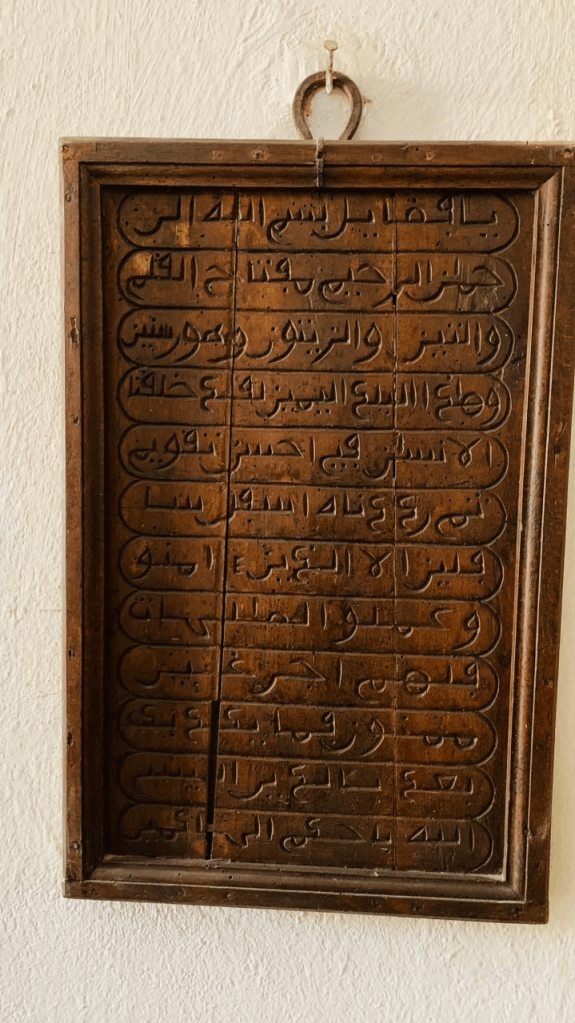 بسم الله الر
حمن الرحيم مفتاح القلم
والتين والزيتون وطور سنين
البلد الامين لقد خلقنا
الانسان في احسن تقويم
ثم رددناه اسفل سا
فلين الا الذين ءامنو
وعملو الصلحات
فلهم اجر غير
ممنون فما يكذبك
بعد بالدين اليس
الله باحكم الحاكمين